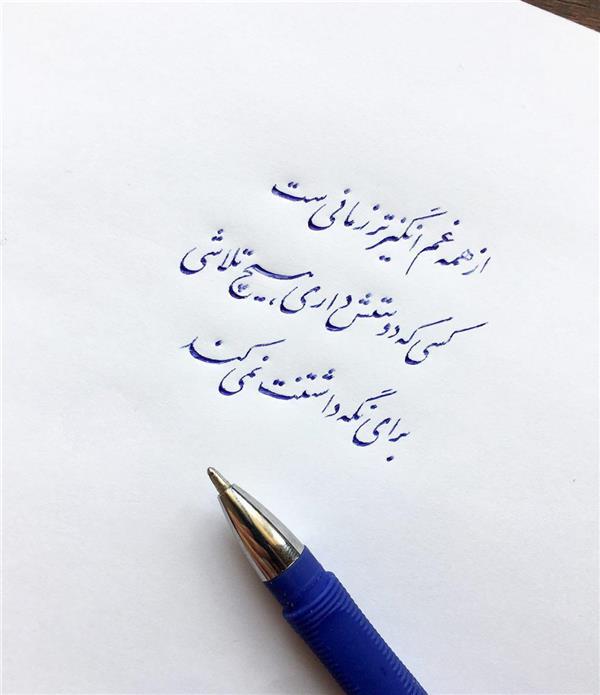 از همه غم‌انگیزتر زمانی ست
کسی که دوستش داری، هیچ تلاشی
برای نگه داشتنت نمی کند